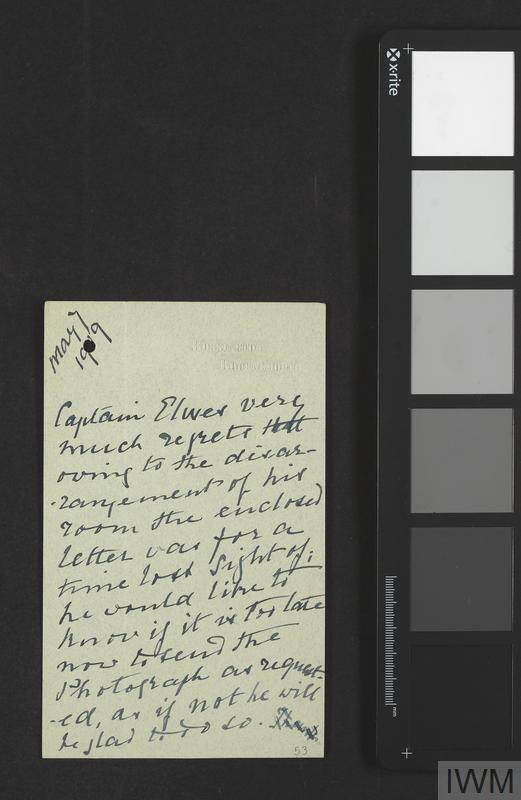 May 7
1919
Captain Elwes very
much regrets that
owing to the disar-
-rangement of his
room the enclosed
letter was for a
time lost sight of:
he would like to
know if it is too late
now to send the
Photograph as request-
-ed, as if not he will
be glad to do so.
53
x·rite
mm
IWM